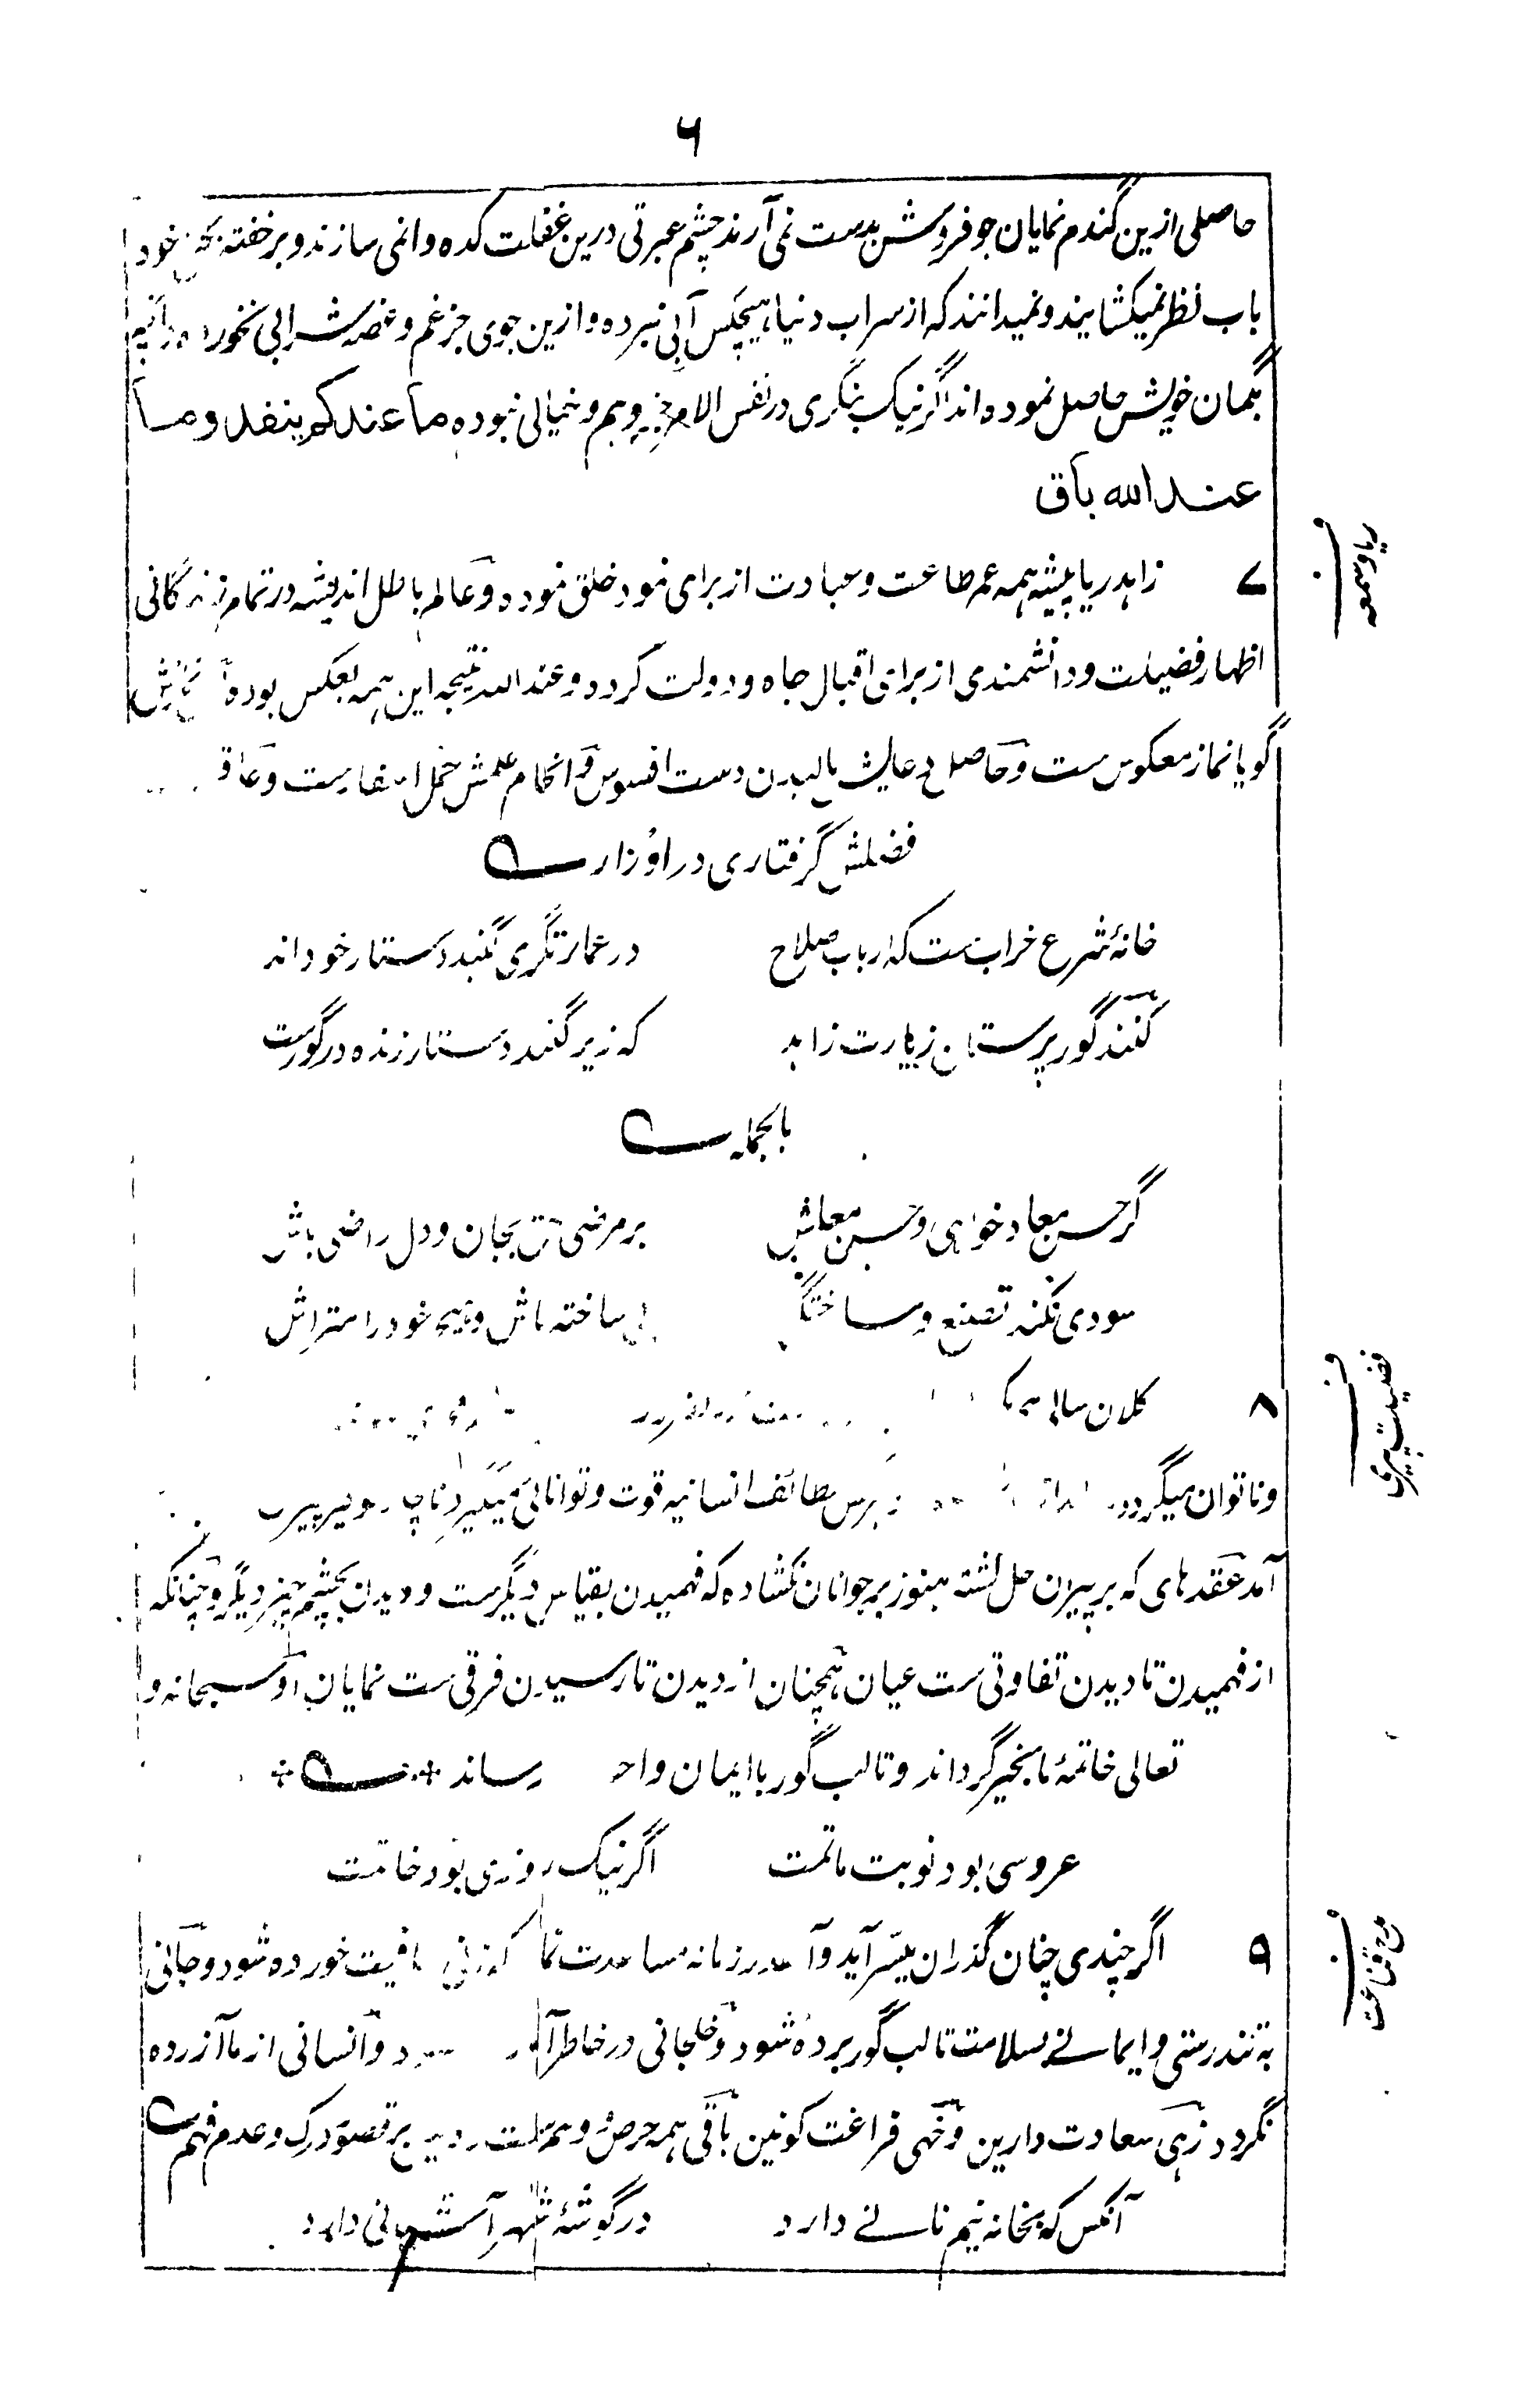 ۶
حاصلی ازین گندم نمایان جو فروش بدست نمی آرند چشم عبرتی درین غفلت کده وا نمی سازند و بر خفته خود
باب نظر نمیکشایند و نمیدانند که از سراب دنیا هیچکس آبی نبرده و ازین جوی جز غم و غصه شرابی نخورده و آنچه
بگمان خویش حاصل نموده اند اگر نیک بنگری در نفس الامر جز وهم و خیالی نبوده ما عندکم ینفد وما
عند الله باق
ریا و سمعه
۷ زاهد ریا پیشه همه عمر طاعت و عبادت از برای نمود خلق نموده و عالم باطل اندیشه در تمام زندگانی
اظهار فضیلت و دانشمندی از برای اقبال جاه و دولت کرده و عند الله نتیجه این همه بعکس بوده
گویا نماز معکوس ست و حاصل دعایش مالیدن دست افسوس و انجام علمش حمل اسفارست و
فضلش گرفتاری در اوزار
خانهٔ شرع خراب ست که ارباب صلاح در عمارتگری گنبد دستار خود اند
کنند گور پرستان زیارت زاهد که زیر گنبد دستار زنده در گورست
بالجمله
گر حسن معاد خواهی و حسن معاش بر مرضی حق بجان و دل راضی باش
سودی نکند تصنع و ساختگی بی ساخته باش و هیچ خود را متراش
فضیلت پیری
۸ کلان سالی
و ناتوان میگردد لطائف انسانیه قوت و توانائی میگیرد
آمد عقدهای که بر پیران حل گشته هنوز بر جوانان نکشاده که فهمیدن بقیاس دیگرست و دیدن بچشم چیز دیگر و چنانکه
از فهمیدن تا دیدن تفاوتی ست عیان همچنان از دیدن تا رسیدن فرقی ست نمایان او سبحانه و
تعالی خاتمهٔ ما بخیر گرداند و تا لب گور با ایمان رساند
عروسی بود نوبت ماتمت اگر نیک روزی بود خاتمت
مدح قناعت
۹ اگر چندی چنان گذران میسر آید و زمانه مساعدت عافیت خورده شود و جانی
به تندرستی و ایمانی بسلامت تا لب گور برده شود و خلجانی در خاطر و انسانی از ما آزرده
نگردد زهی سعادت دارین و خهی فراغت کونین باقی همه حرص و بر قصور درک و عدم فهم
آنکس که بخانه نیم نانی دارد در گوشهٔ شهر آشیانی دارد